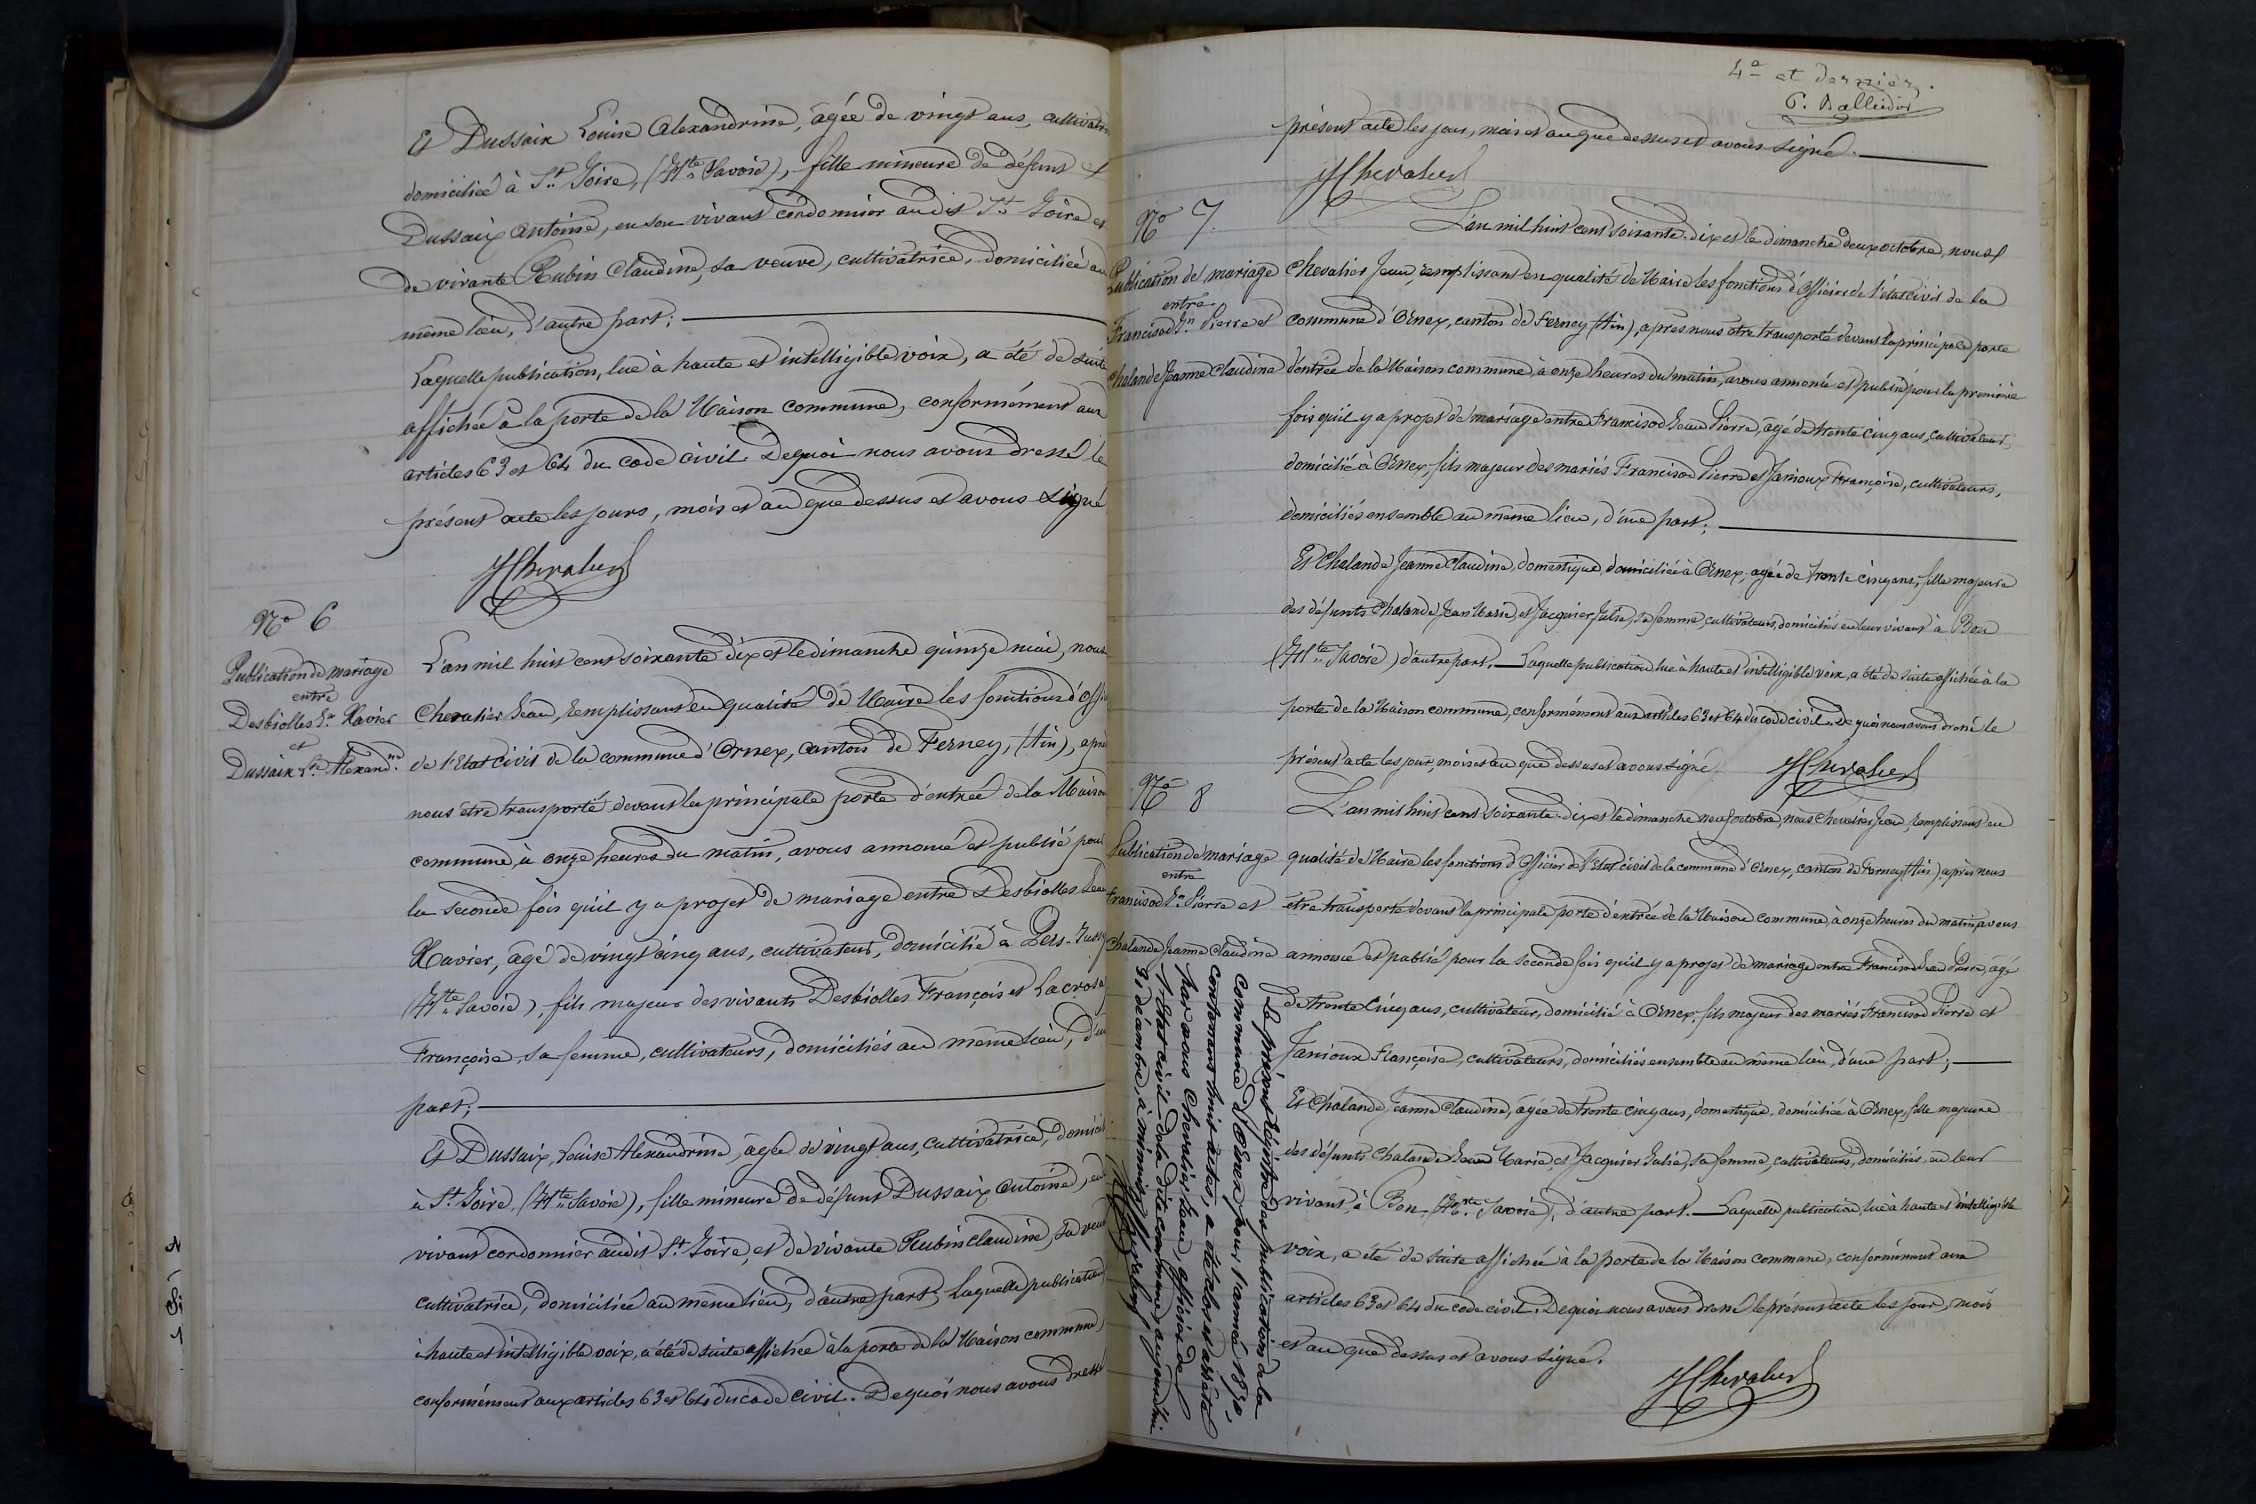 Et Dussaix Louise Alexandrine, âgée de vingt ans, cultivatrice
domiciliée à St. Joire, (Hte Savoie), fille mineure de défunt
Dussaix Antoine, en son vivant cordonnier audit St. Joire et
de vivante Rubin Claudine, sa veuve, cultivatrice, domiciliée au
même lieu, d'autre part;
Laquelle publication, lue à haute et intelligible voix, a été de suite
affichée à la porte de la Maison commune, conformément aux
articles 63 et 64 du code civil. De quoi nous avons dressé le
présent acte les jours, mois et an que dessus et avons signé
JChevalier
No 6
Publication de mariage
entre
Desbiolles Jn Xavier
et
Dussaix Lse Alexandne
L'an mil huit cent soixante dix et le dimanche quinze mai, nous
Chevalier Jean, remplissant en qualité de Maire les fonctions d'Offi
de l'Etat civil de la commune d'Ornex, canton de Ferney, (Ain), après
nous être transporté devant la principale porte d'entrée de la Maison
commune, à onze heures du matin, avons annoncé et publié pour
la seconde fois qu'il y a projet de mariage entre Desbiolles Jean
Xavier, âgé de vingt cinq ans, cultivateur, domicilié à Pers-Jussy
(Hte Savoie), fils majeur des vivants Desbiolles François et Lacrosa
Françoise, sa femme, cultivateurs, domiciliés au même lieu, d'une
part;
Et Dussaix, Louise Alexandrine, âgée de vingt ans, cultivatrice, domicil
à St. Joire, (Hte Savoie), fille mineure de défunt Dussaix Antoine, en
vivant cordonnier audit St. Joire, et de vivante Rubin Claudine, sa veuve
cultivatrice, domiciliée au même lieu, d'autre part, Laquelle publication
à haute et intelligible voix, a été de suite affichée à la porte de la Maison commune,
conformément aux articles 63 et 64 du code civil. De quoi nous avons dressé
4e et dernier.
présent acte les jour, mois et an que dessus et avons signé.
JChevalier
No 7.
Publication de mariage
entre
Francisod Jn Pierre et
Chalande Jeanne Claudine
L'an mil huit cent soixante-dix et le dimanche deux octobre, nous
Chevalier Jean, remplissant en qualité de Maire les fonctions d'Officier de l'état civil de la
commune d'Ornex, canton de Ferney (Ain), après nous être transporté devant la principale porte
d'entrée de la Maison commune, à onze heures du matin, avons annoncé et publié pour la première
fois qu'il y a projet de mariage entre Francisod Jean Pierre, âgé de trente cinq ans, cultivateur,
domicilié à Ornex, fils majeur des mariés Francisod Pierre et Janioux Françoise, cultivateurs,
domiciliés ensemble au même lieu, d'une part;
Et Chalande Jeanne Claudine, domestique, domiciliée à Ornex, âgée de trente cinq ans, fille majeure
des défunts Chalande Jean Marie, et Jacquier Julie, sa femme, cultivateurs, domiciliés en leur vivant à Bon
(Hte Savoie) d'autre part. Laquelle publication lue à haute et intelligible voix, a été de suite affichée à la
porte de la Maison commune, conformément aux articles 63 et 64 du code civil. De quoi nous avons dressé le
présent acte les jour, mois et an que dessus et avons signé JChevalier
No 8
Publication de mariage
entre
Francisod Jn Pierre et
Chalande Jeanne Claudine
L'an mil huit cent soixante-dix et le dimanche neuf octobre, nous Chevalier Jean, remplissant en
qualité de Maire les fonctions d'Officier de l'Etat civil de la commune d'Ornex, canton de Ferney (Ain) après nous
être transporté devant la principale porte d'entrée de la Maison commune, à onze heures du matin, avons
annoncé et publié pour la seconde fois qu'il y a projet de mariage entre Francisod Jean Pierre, âgé
de trente cinq ans, cultivateur, domicilié à Ornex, fils majeur des mariés Francisod Pierre et
Janioux Françoise, cultivateurs, domiciliés ensemble au même lieu, d'une part;
Et Chalande, Jeanne Claudine, âgée de trente cinq ans, domestique, domiciliée à Ornex, fille majeure
des défunts Chalande Jean Marie, et Jacquier Julie, sa femme, cultivateurs, domiciliés en leur
vivant, à Bon (Hte Savoie), d'autre part. Laquelle publication, lue à haute et intelligible
voix, a été de suite affichée à la porte de la Maison commune, conformément aux
articles 63 et 64 du code civil. De quoi nous avons dressé le présent acte les jour, mois
et an que dessus et avons signé.
JChevalier
Le présent registre de publication de la
commune d'Ornex pour l'année 1870
contenant huit actes, a été clos et arrêté
par nous Chevalier Jean, officier de
l'état civil de la dite commune, aujourd'hui
31 décembre, à minuit JChevalier